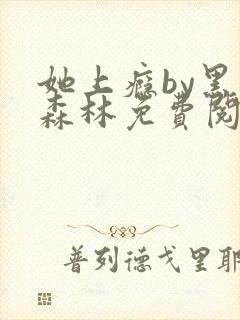 她上瘾by黑
森林免费阅
普列德戈里耶